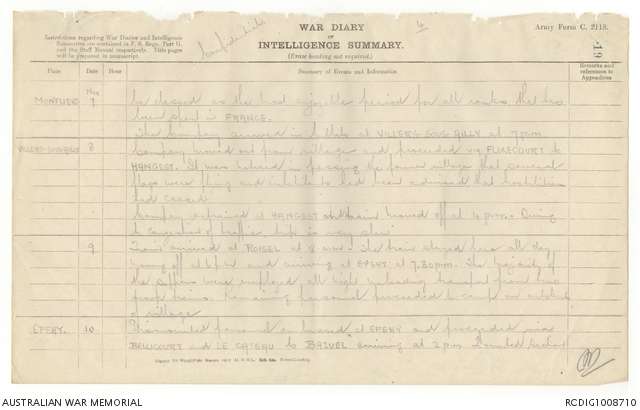 WAR DIARY
or
INTELLIGENCE SUMMARY.
(Erase heading not required.)
Army Form C. 2118.
Instructions regarding War Diaries and Intelligence
Summaries are contained in F. S. Regs. Part II.
and the Staff Manual respectively. Title pages
will be prepared in manuscript.
Confidential
4
19
Place Date Hour Summary of Events and Information Remarks and references to Appendices
Nov 7 be classed as the most enjoyable period for all ranks that has
been spent in FRANCE.
The company arrived in billets at VILLERS SOUS AILLY at 7 pm
8 Company moved out from village and proceeded via FLIXECOURT to
HANGEST. It was noticed in passing the former village that several
flags were flying and inhabitants had been advised that hostilities
had ceased.
Company entrained at HANGEST and train moved off at 4 pm. Owing
to congestion of traffic trip is very slow.
9 Train arrived at ROISEL at 8 am. The train stayed here all day,
moving off at 6 pm and arriving at EPEHY at 7.30 pm. The majority of
the sappers were employed all night unloading transport from two
trains. Remaining personnel proceeded to camp on outskirts
of village.
EPEHY. 10 Dismounted personnel at EPEHY and proceeded via
BELLICOURT and LE CATEAU to BAZUEL arriving at 2 pm.
AUSTRALIAN WAR MEMORIAL
RCDIG1008710